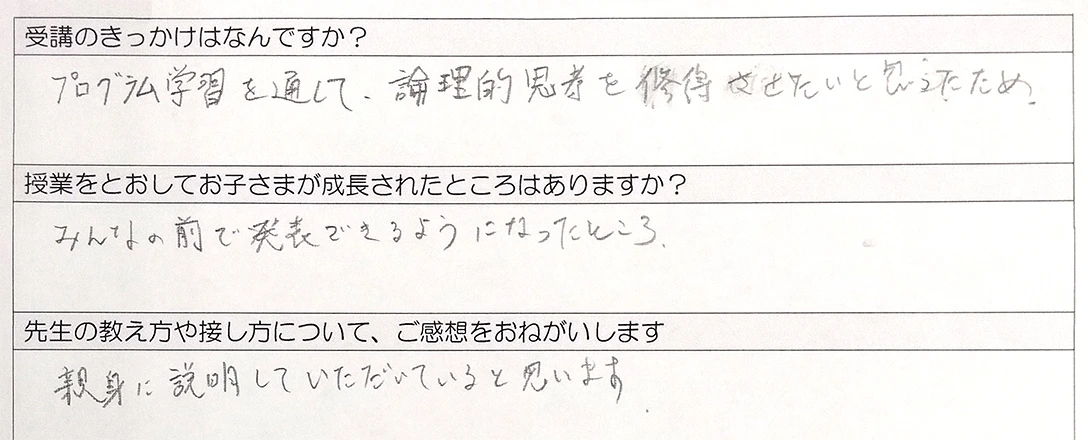 受講のきっかけはなんですか？
プログラム学習を通して、論理的思考を修得させたいと思ったため.
授業をとおしてお子さまが成長されたところはありますか？
みんなの前で発表できるようになったところ.
先生の教え方や接し方について、ご感想をおねがいします
親身に説明していただいていると思います.